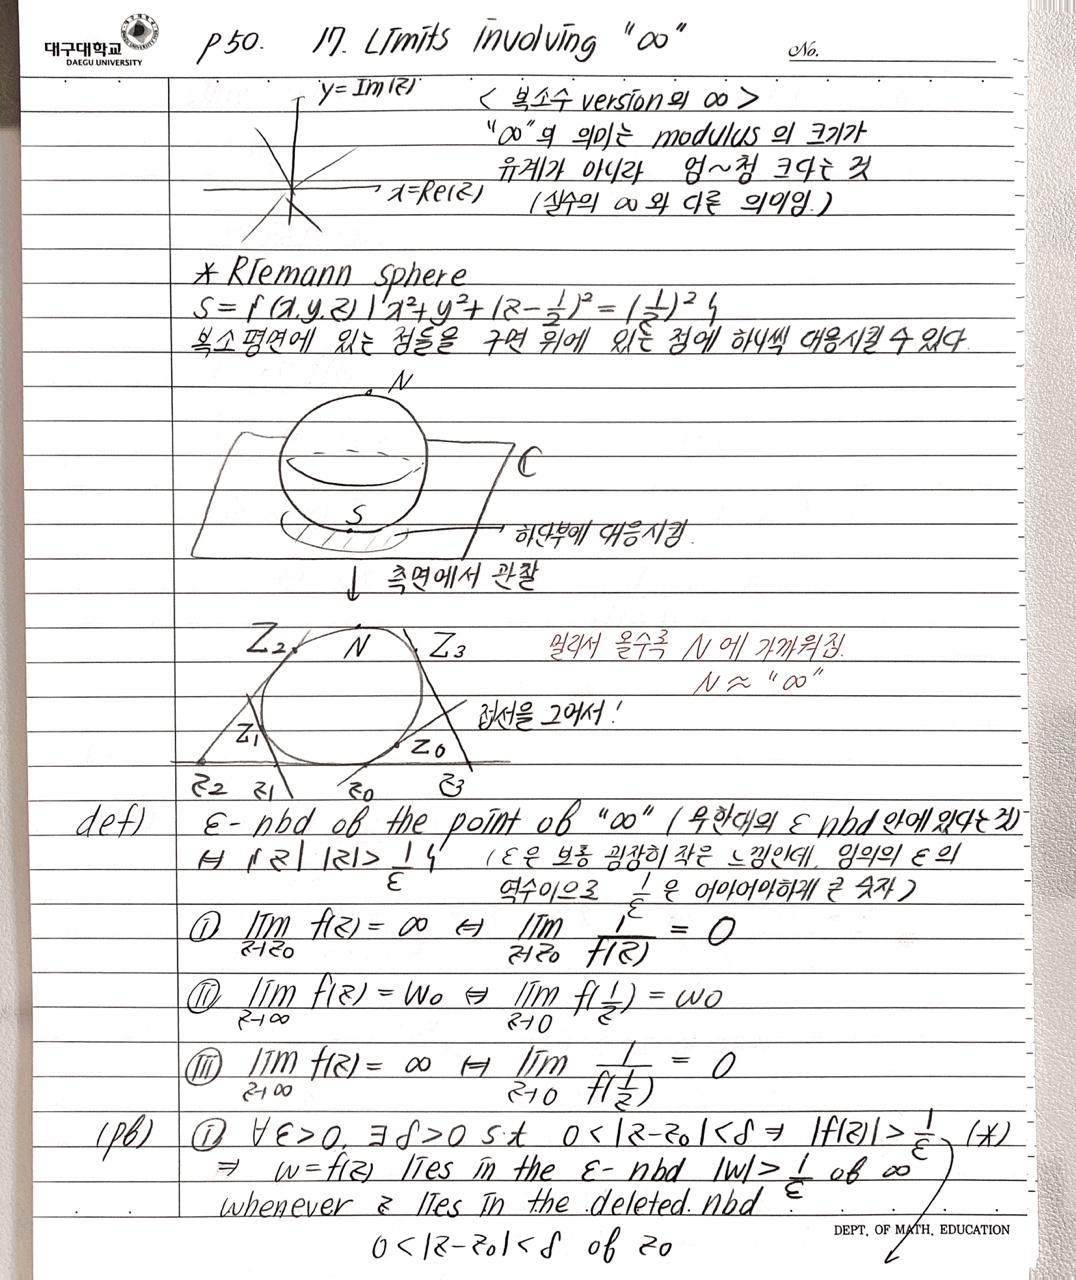 대구대학교
DAEGU UNIVERSITY
p50. 17. Limits involving "∞"
No.
y=Im(z)
x=Re(z)
< 복소수 version의 ∞ >
"∞"의 의미는 modulus 의 크기가
유계가 아니라 엄~청 크다는 것
(실수의 ∞와 다른 의미임.)
* Riemann sphere
S = {(x,y,z) | x²+y²+(z-1/2)² = (1/2)²}
복소평면에 있는 점들을 구면 위에 있는 점에 하나씩 대응시킬 수 있다.
N
C
S
하단부에 대응시킴.
↓ 측면에서 관찰
Z₂ N Z₃
멀리서 올수록 N에 가까워짐.
N ≈ "∞"
접선을 그어서!
Z₁ Z₀
z₂ z₁ z₀ z₃
def) ε-nbd of the point of "∞" (무한대의 ε nbd 안에 있다는 것)
⇔ {z | |z| > 1/ε} (ε은 보통 굉장히 작은 느낌인데, 임의의 ε의
역수이므로 1/ε은 어마어마하게 큰 숫자)
ⓘ lim z→z₀ f(z) = ∞ ⇔ lim z→z₀ 1/f(z) = 0
ⓘⓘ lim z→∞ f(z) = w₀ ⇔ lim z→0 f(1/z) = w₀
ⓘⓘⓘ lim z→∞ f(z) = ∞ ⇔ lim z→0 1/f(1/z) = 0
(pf) ⓘ ∀ε>0, ∃δ>0 s.t 0<|z-z₀|<δ ⇒ |f(z)| > 1/ε (*)
⇒ w=f(z) lies in the ε-nbd |w| > 1/ε of ∞
whenever z lies in the deleted nbd
0<|z-z₀|<δ of z₀
DEPT. OF MATH. EDUCATION